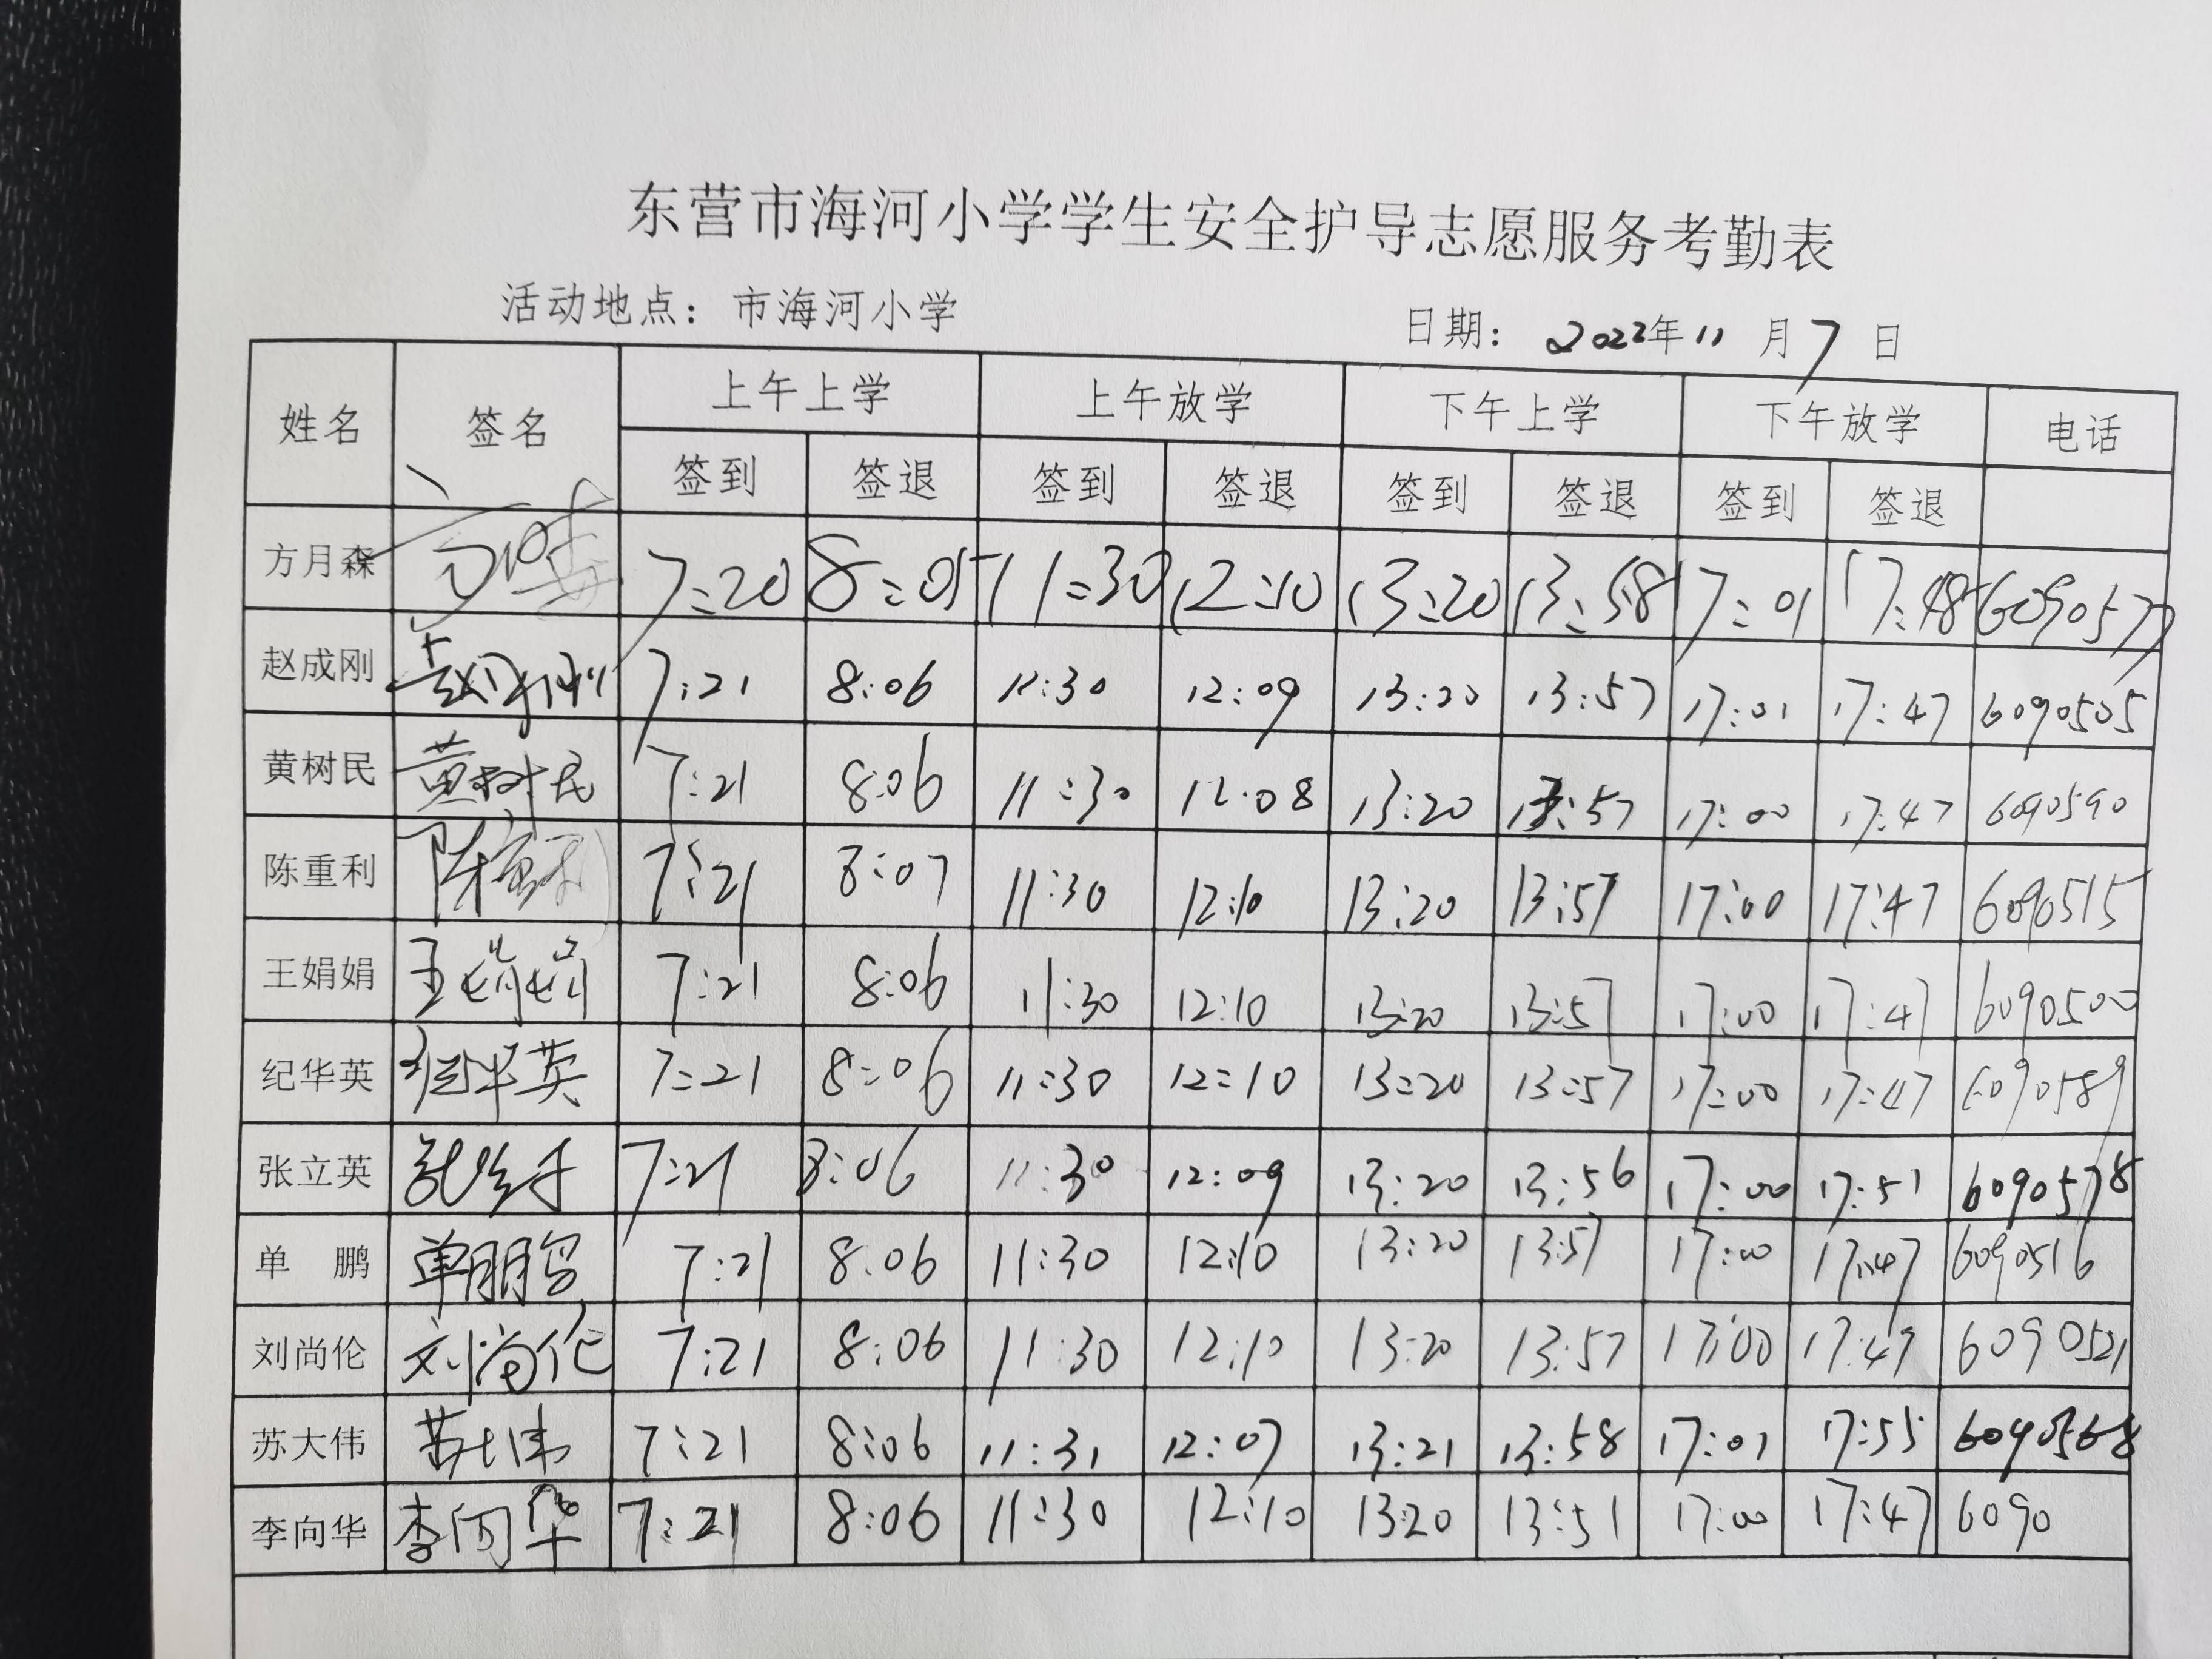 东营市海河小学学生安全护导志愿服务考勤表
活动地点：市海河小学 日期：2022年11月7日
姓名 签名 上午上学 上午放学 下午上学 下午放学 电话
签到 签退 签到 签退 签到 签退 签到 签退
方月森 7:20 8:05 11:30 12:10 13:20 13:58 17:01 17:48 6090577
赵成刚 赵成刚 7:21 8:06 11:30 12:09 13:20 13:57 17:01 17:47 6090505
黄树民 黄树民 7:21 8:06 11:30 12:08 13:20 13:57 17:00 17:47 6090590
陈重利 陈重利 7:21 8:07 11:30 12:10 13:20 13:57 17:00 17:47 6090515
王娟娟 王娟娟 7:21 8:06 11:30 12:10 13:20 13:57 17:00 17:47 6090500
纪华英 纪华英 7:21 8:06 11:30 12:10 13:20 13:57 17:00 17:47 6090589
张立英 7:21 8:06 11:30 12:09 13:20 13:56 17:00 17:51 6090578
单 鹏 单鹏 7:21 8:06 11:30 12:10 13:20 13:57 17:00 17:47 6090516
刘尚伦 刘尚伦 7:21 8:06 11:30 12:10 13:20 13:57 17:00 17:47 6090521
苏大伟 苏大伟 7:21 8:06 11:31 12:07 13:21 13:58 17:01 17:55 6090568
李向华 李向华 7:21 8:06 11:30 12:10 13:20 13:51 17:00 17:47 6090